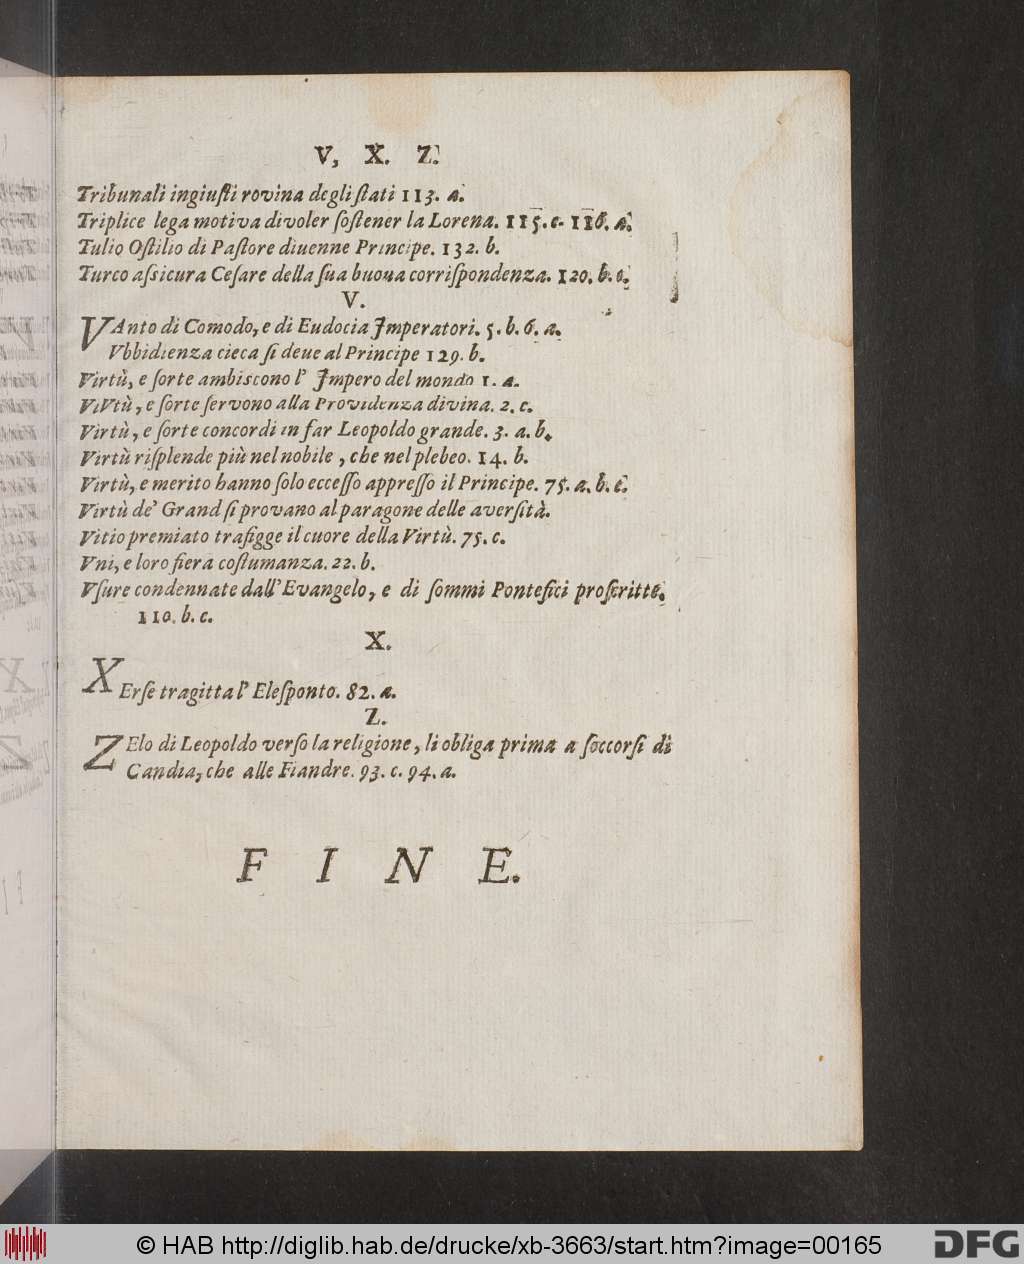 V, X. Z.
Tribunali ingiuſti rovina degli ſtati 113. a.
Triplice lega motiva di voler ſoſtener la Lorena. 115. c. 116. a.
Tulio Oſtilio di Paſtore diuenne Principe. 132. b.
Turco aſsicura Ceſare della ſua buona corriſpondenza. 120. b. c.
V.
VAnto di Comodo, e di Eudocia Imperatori. 5. b. 6. a.
Vbbidienza cieca ſi deue al Principe 129. b.
Virtù, e ſorte ambiscono l' Impero del mondo 1. a.
ViVtù, e ſorte ſervono alla Providenza divina. 2. c.
Virtù, e ſorte concordi in far Leopoldo grande. 3. a. b.
Virtù riſplende più nel nobile, che nel plebeo. 14. b.
Virtù, e merito hanno ſolo ecceſſo appreſſo il Principe. 75. a. b. c.
Virtù de' Grand ſi provano al paragone delle averſità.
Vitio premiato trafigge il cuore della Virtù. 75. c.
Vni, e loro fiera coſtumanza. 22. b.
Vſure condennate dall' Evangelo, e di ſommi Pontefici proſcritte.
110. b. c.
X.
XErſe tragitta l' Eleſponto. 82. a.
Z.
ZElo di Leopoldo verſo la religione, li obliga prima a ſoccorſi di
Candia, che alle Fiandre. 93. c. 94. a.
F I N E.
© HAB http://diglib.hab.de/drucke/xb-3663/start.htm?image=00165
DFG